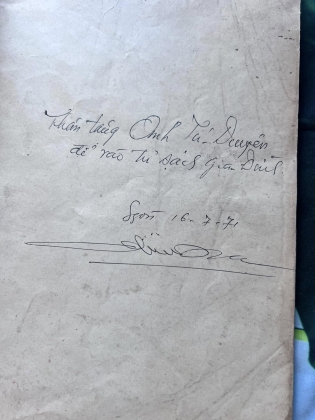 Thân tặng Anh Tú-Duyên
để vào Tủ sách gia đình
Sgòn 16-7-71